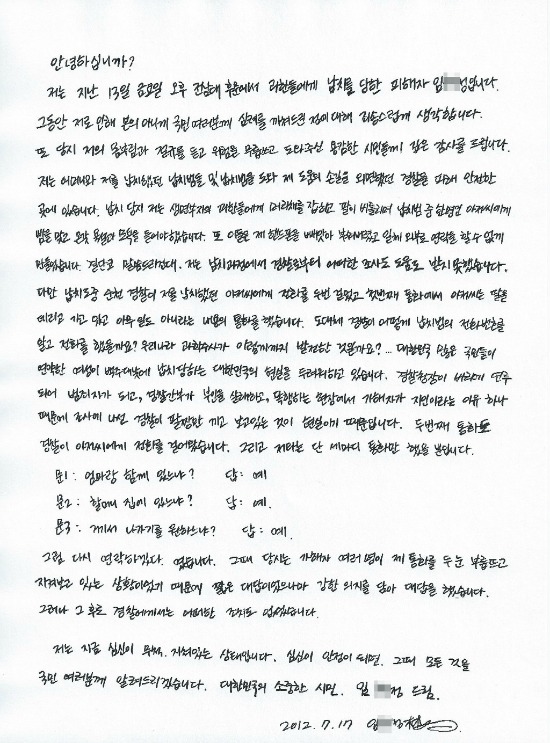 안녕하십니까?
저는 지난 13일 금요일 오후 전남대 후문에서 괴한들에게 납치를 당한 피해자 임 정입니다.
그동안 저로 인해 본의 아니게 국민 여러분께 심려를 끼쳐드린 점에 대해 죄송스럽게 생각합니다.
또 당시 저의 몸부림과 절규를 듣고 위험을 무릅쓰고 도와주신 용감한 시민들께 깊은 감사를 드립니다.
저는 어머니와 저를 납치했던 납치범들 및 납치범을 도와 제 도움의 손길을 외면했던 경찰을 피해 안전한
곳에 있습니다. 납치 당시 저는 생면부지의 괴한들에게 머리채를 잡히고 팔이 비틀리며 납치범 중 한명인 아저씨에게
뺨을 맞고 온갖 욕설과 모욕을 들어야 했습니다. 또 이들은 제 핸드폰을 빼앗아 부숴버렸고 일체 외부로 연락을 할 수 없게
만들었습니다. 결단코 말씀드리건대, 저는 납치과정에서 경찰로부터 어떠한 조사도 도움도 받지 못했습니다.
다만 납치도중 순천 경찰이 저를 납치했던 아저씨에게 전화를 두번 걸었고 첫번째 통화에서 아저씨는 딸을
데리고 가고 있고 아무 일도 아니라는 내용의 통화를 했습니다. 도대체 경찰이 어떻게 납치범의 전화번호를
알고 전화를 했을까요? 우리나라 과학수사가 이렇게까지 발전한 것일까요?... 대한민국 많은 국민들이
연약한 여성이 백주대낮에 납치당하는 대한민국의 현실을 두려워하고 있습니다. 경찰청장이 비리에 연루
되어 범죄자가 되고, 경찰간부가 부인을 살해하고, 폭행하는 현장에서 가해자가 지인이라는 이유 하나
때문에 조사에 나선 경찰이 팔짱만 끼고 보고있는 것이 현실이기 때문입니다. 두번째 통화로
경찰이 아저씨에게 전화를 걸어왔습니다. 그리고 저와는 단 세마디 통화만 했을 뿐입니다.
문1: 엄마랑 함께 있느냐? 답: 예
문2: 함께 집에 있느냐? 답: 예.
문3: 거기서 나가기를 원하느냐? 답: 예.
그럼 다시 연락하겠다. 였습니다. 그때 당시는 가해자 여러명이 제 통화를 두 눈 부릅뜨고
지켜보고 있는 상황이었기 때문에 짧은 대답이었으나마 강한 의지를 담아 대답을 했습니다.
그러나 그 후로 경찰에게서는 어떠한 조치도 없었습니다.
저는 지금 심신이 무척, 지쳐있는 상태입니다. 심신이 안정이 되면, 그때 모든 것을
국민 여러분께 알려드리겠습니다. 대한민국의 소중한 시민. 임 정 드림.
2012. 7. 17 임